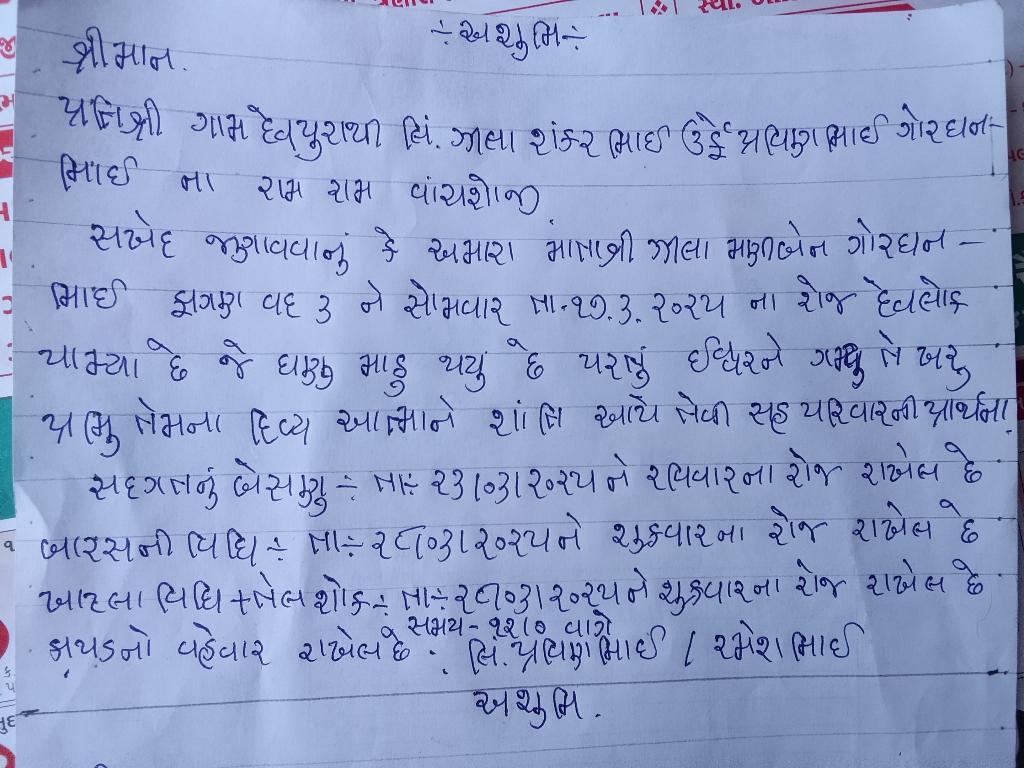 ÷ અશુભ ÷
શ્રીમાન.
પ્રતિશ્રી ગામ દેવપુરાથી લિ. ઝાલા શંકરભાઈ ઉર્ફે પ્રવિણભાઈ ગોરધન-
ભાઈ ના રામ રામ વાંચશોજી
સખેદ જણાવવાનું કે અમારા માતાશ્રી ઝાલા મણીબેન ગોરધન -
ભાઈ ફાગણ વદ ૩ ને સોમવાર તા-૧૭.૩.૨૦૨૫ ના રોજ દેવલોક
પામ્યા છે જે ઘણુ માઠુ થયું છે પરંતું ઈશ્વરને ગમ્યુ તે ખરુ
પ્રભુ તેમના દિવ્ય આત્માને શાંતિ આપે તેવી સહ પરિવારની પ્રાર્થના.
સદગતનું બેસણુ ÷ તા÷ ૨૩/૦૩/૨૦૨૫ ને રવિવારના રોજ રાખેલ છે
બારસની વિધિ ÷ તા÷ ૨૮/૦૩/૨૦૨૫ ને શુક્રવારના રોજ રાખેલ છે
ખાટલા વિધિ + તેલ શોક ÷ તા÷ ૨૮/૦૩/૨૦૨૫ ને શુક્રવારના રોજ રાખેલ છે
સમય - ૧૨/૦ વાગે
કાપડનો વહેવાર રાખેલ છે. લિ. પ્રવિણભાઈ / રમેશભાઈ
અશુભ.